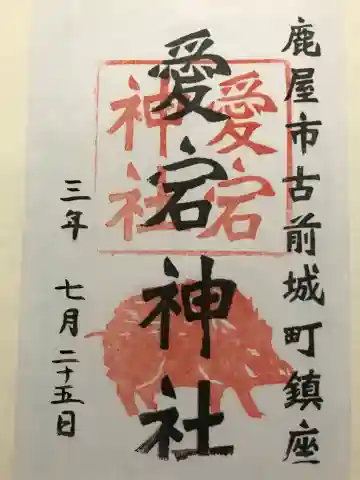 鹿屋市古前城町鎮座
愛宕神社
愛宕
神社
三年 七月二十五日